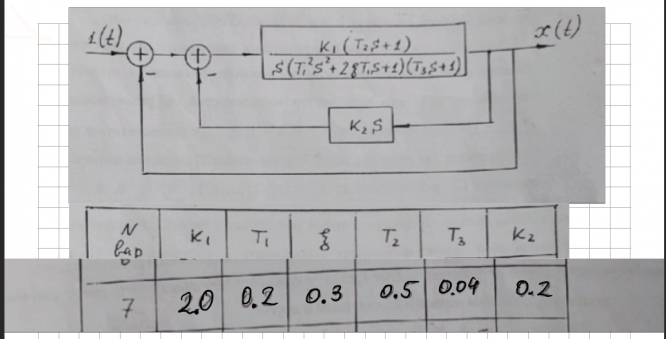 1(t)
x(t)
K₁(T₂S+1)
S(T₁²S²+2ξT₁S+1)(T₃S+1)
K₂S
N вар K₁ T₁ ξ T₂ T₃ K₂
7 20 0.2 0.3 0.5 0.04 0.2